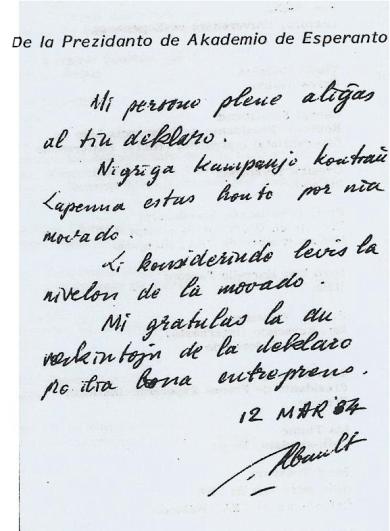 De la Prezidanto de Akademio de Esperanto
Mi persone plene aliĝas
al tiu deklaro.
Nigriga kampanjo kontraŭ
Lapenna estas honto por nia
movado.
Li konsiderinde levis la
nivelon de la movado.
Mi gratulas la du
verkintojn de la deklaro
pro ilia bona entrepreno.
12 MAR 84